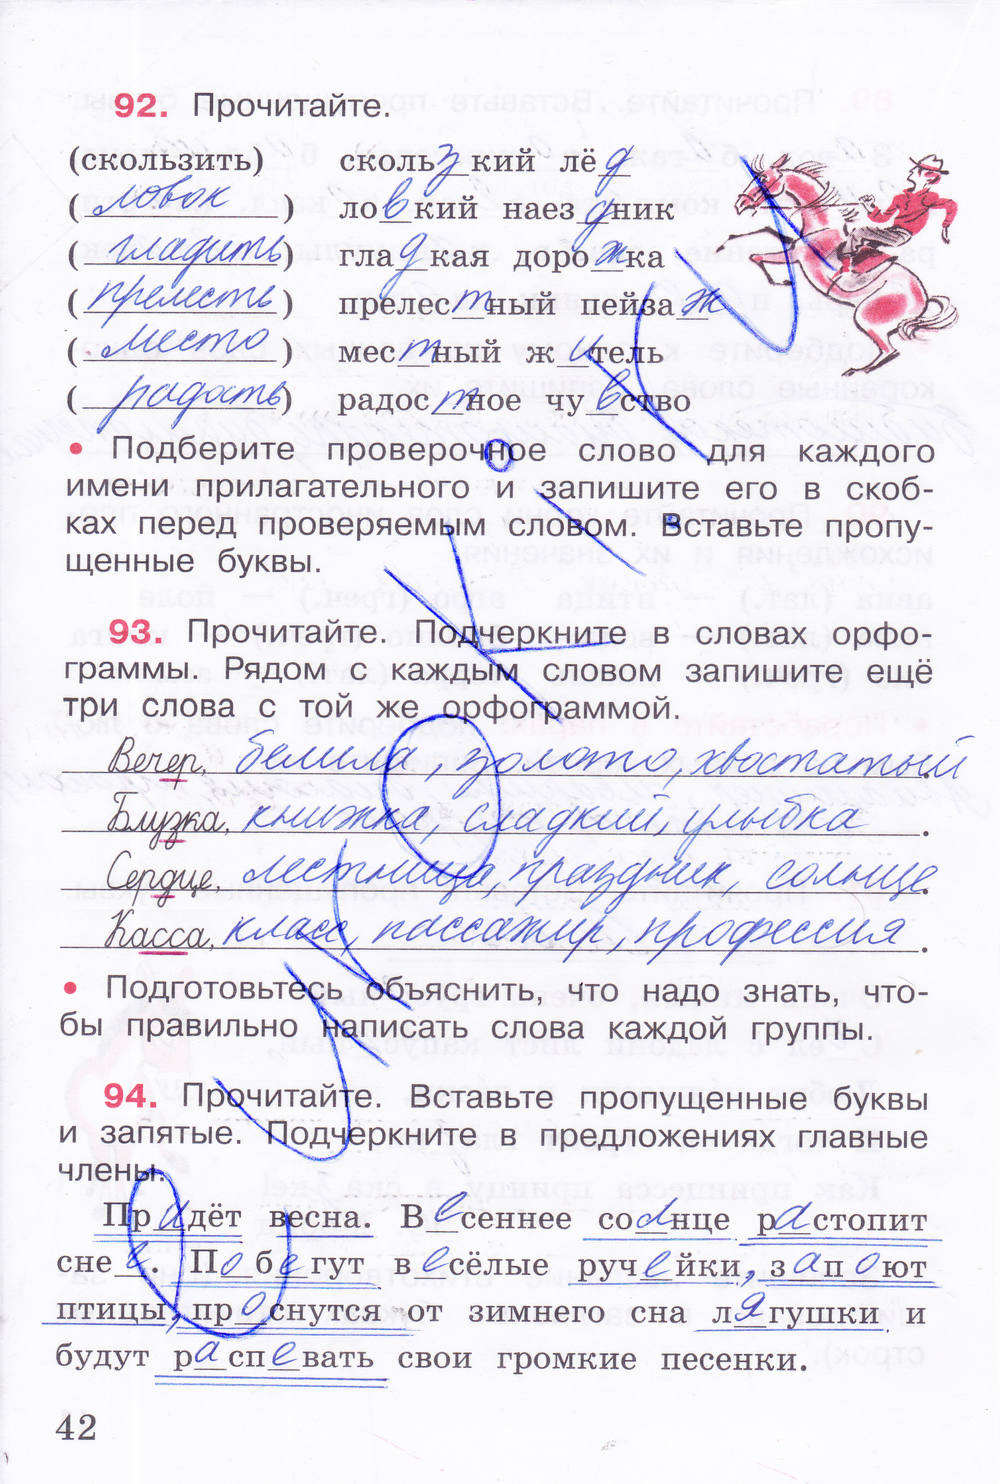 92. Прочитайте.
(скользить) скользкий лёд
(ловок) ловкий наездник
(гладить) гладкая дорожка
(прелесть) прелестный пейзаж
(место) местный житель
(радость) радостное чувство
• Подберите проверочное слово для каждого
имени прилагательного и запишите его в скоб-
ках перед проверяемым словом. Вставьте пропу-
щенные буквы.
93. Прочитайте. Подчеркните в словах орфо-
граммы. Рядом с каждым словом запишите ещё
три слова с той же орфограммой.
Вечер, белила, золото, хвостатый.
Блузка, книжка, сладкий, улыбка.
Сердце, лестница, праздник, солнце.
Касса, класс, пассажир, профессия.
• Подготовьтесь объяснить, что надо знать, что-
бы правильно написать слова каждой группы.
94. Прочитайте. Вставьте пропущенные буквы
и запятые. Подчеркните в предложениях главные
члены.
Придёт весна. Весеннее солнце растопит
снег. Побегут весёлые ручейки, запоют
птицы, проснутся от зимнего сна лягушки и
будут распевать свои громкие песенки.
42